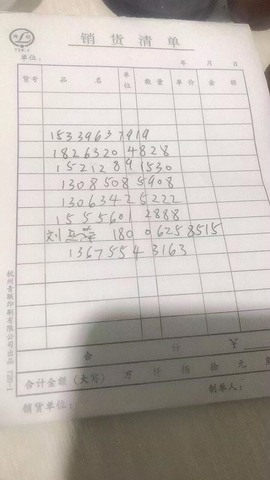 销货清单
单位： 年 月 日
货号 品名 单位 数量 单价 金额
15339637919
18263204828
15212891530
13085085908
13063425222
15556012888
刘 18006258515
13675543163
合计 ¥
合计金额（大写） 万 仟 佰 拾 元
销货单位： 制单人：
杭州青联印刷有限公司出品